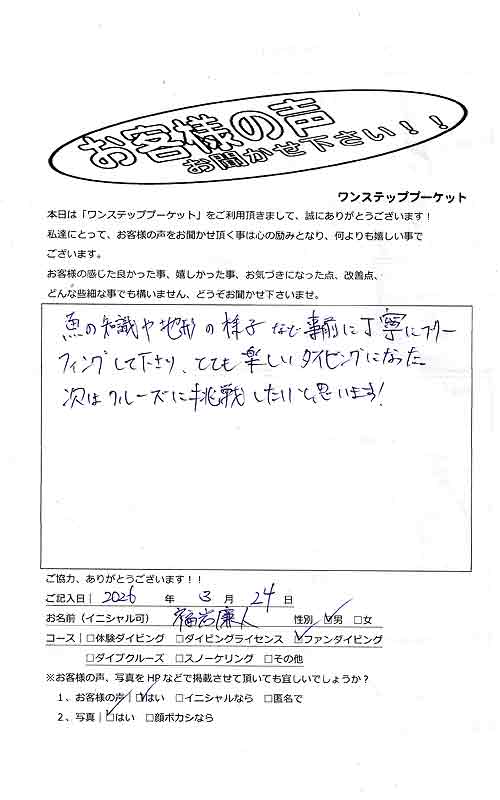 お客様の声
お聞かせ下さい！！
ワンステッププーケット
本日は「ワンステッププーケット」をご利用頂きまして、誠にありがとうございます！
私達にとって、お客様の声をお聞かせ頂く事は心の励みとなり、何よりも嬉しい事で
ございます。
お客様の感じた良かった事、嬉しかった事、お気づきになった点、改善点、
どんな些細な事でも構いません、どうぞお聞かせ下さいませ。
魚の知識や地形の様子など事前に丁寧にブリー
フィングして下さり、とても楽しいダイビングになった
次はクルーズに挑戦したいと思います!
ご協力、ありがとうございます！！
ご記入日｜2026 年 3 月 24 日
お名前（イニシャル可） 福岩廉人 性別｜☑男 □女
コース｜□体験ダイビング □ダイビングライセンス ☑ファンダイビング
□ダイブクルーズ □スノーケリング □その他
※お客様の声、写真をHPなどで掲載させて頂いても宜しいでしょうか？
1、お客様の声｜☑はい □イニシャルなら □匿名で
2、写真｜☑はい □顔ボカシなら